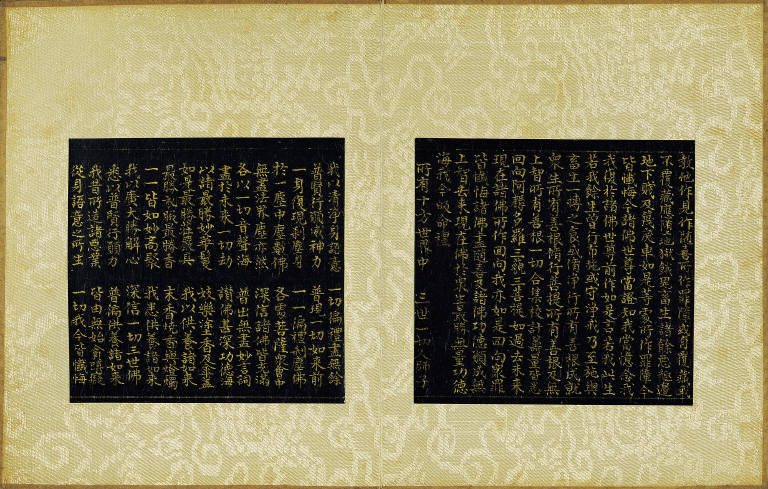 教他作見作隨喜所作罪障或有覆藏或
不覆藏應墮地獄餓鬼畜生諸餘惡趣邊
地下賤及蔑戾車如是等處所作罪障今
皆懺悔今諸佛世尊當證知我當憶念我
我復於諸佛世尊前作如是言若我此生
若我餘生曾行布施或守淨戒乃至施與
畜生一摶之食或修淨行所有善根成就
眾生所有善根修行菩提所有善根及無
上智所有善根一切合集校計籌量皆悉
回向阿耨多羅三藐三菩提如過去未來
現在諸佛所作回向我亦如是回向眾罪
皆懺悔諸福盡隨喜及請佛功德願成無
上智去來現在佛於眾生最勝無量功德
海我今皈命禮
所有十方世界中 三世一切人師子
我以清淨身語意 一切徧禮盡無餘
普賢行願威神力 普現一切如來前
一身復現剎塵身 一一徧禮剎塵佛
於一塵中塵數佛 各處菩薩眾會中
無盡法界塵亦然 深信諸佛皆充滿
各以一切音聲海 普出無盡妙言詞
盡於未來一切劫 讚佛甚深功德海
以諸最勝妙華鬘 妓樂塗香及傘蓋
如是最勝莊嚴具 我以供養諸如來
最勝衣服最勝香 末香燒香與燈燭
一一皆如妙高聚 我悉供養諸如來
我以廣大勝解心 深信一切三世佛
悉以普賢行願力 普徧供養諸如來
我昔所造諸惡業 皆由無始貪瞋癡
從身語意之所生 一切我今皆懺悔